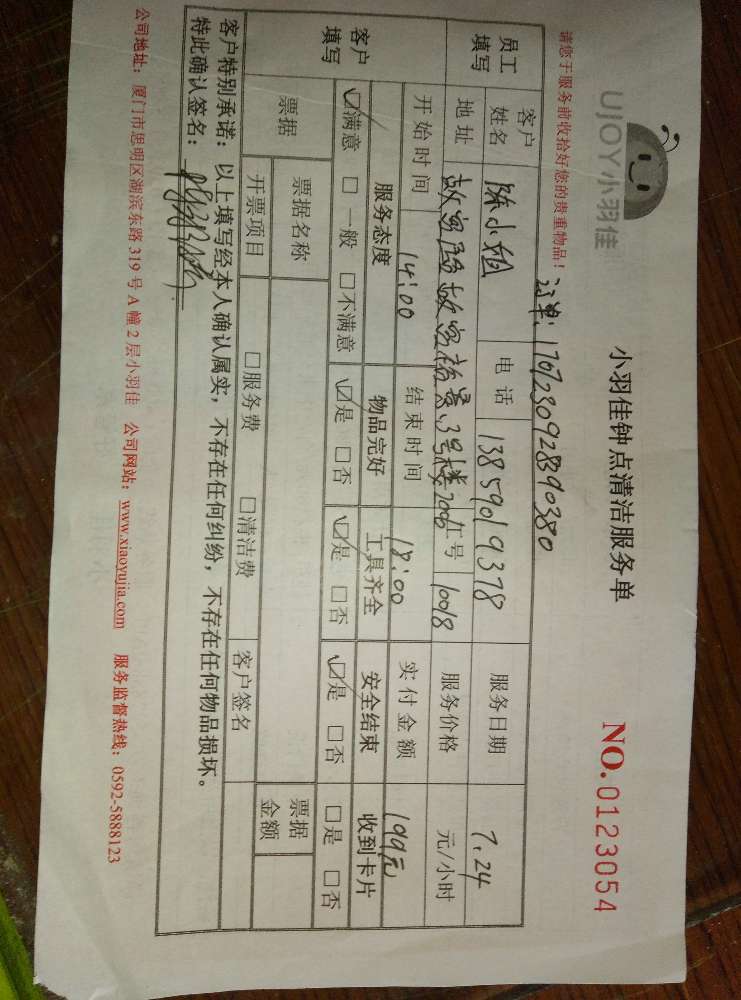 UJOY小羽佳
小羽佳钟点清洁服务单
NO.0123054
请您于服务前收拾好您的贵重物品!
订单:1707230928390380
员工填写 客户姓名 陈小姐 电话 13859019378 服务日期 7.24
地址 故宫路故宫裕景,3号楼2006 工号 10018 服务价格 元/小时
开始时间 14:00 结束时间 18:00 实付金额 199元
客户填写 服务态度 物品完好 工具齐全 安全结束 收到卡片
☑满意 □一般 □不满意 ☑是 □否 ☑是 □否 ☑是 □否 □是 □否
票据 票据名称 票据金额
开票项目 □服务费 □清洁费 客户签名
客户特别承诺:以上填写经本人确认属实,不存在任何纠纷,不存在任何物品损坏。
特此确认签名:
公司地址:厦门市思明区湖滨东路319号A幢2层小羽佳 公司网站:www.xiaoyujia.com 服务监督热线:0592-5888123